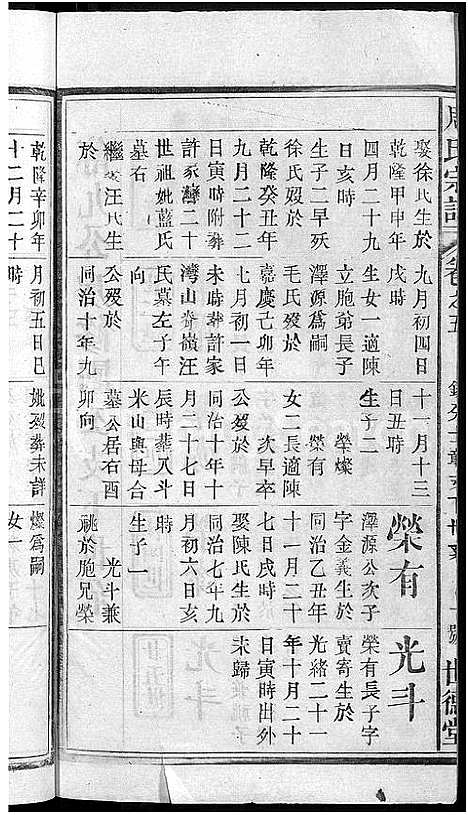 周氏宗譜
卷之五
世德堂
娶徐氏生於
乾隆甲申年
四月二十九
日亥時
生子二早殀
徐氏歿於
乾隆癸丑年
九月二十二
日寅時附葬
許家灣二十
世祖妣藍氏
墓右
繼娶汪氏生
於
乾隆辛卯年
十二月二十
九月初四日
戌時
生女一適陳
立胞弟長子
澤源為嗣
嘉慶己卯年
七月初一日
未時葬許家
灣山脊嶺汪
氏墓左子午
公歿於
同治十年九
月初五日巳
時
十一月十三
日丑時
生子二
榮燦
榮有
女二長適陳
次早卒
公歿於
同治十年十
月二十七日
辰時葬八斗
米山與母合
墓公居右酉
卯向
妣歿葬未詳
榮有
澤源公次子
字金義生於
同治乙丑年
十一月二十
七日戌時
娶陳氏生於
同治九年九
月初六日亥
時
生子一
光斗兼
祧於胞兄榮
燦為嗣
女一
光斗
榮有長子字
賣寄生於
光緒二十一
年十月二十
日寅時出外
未歸